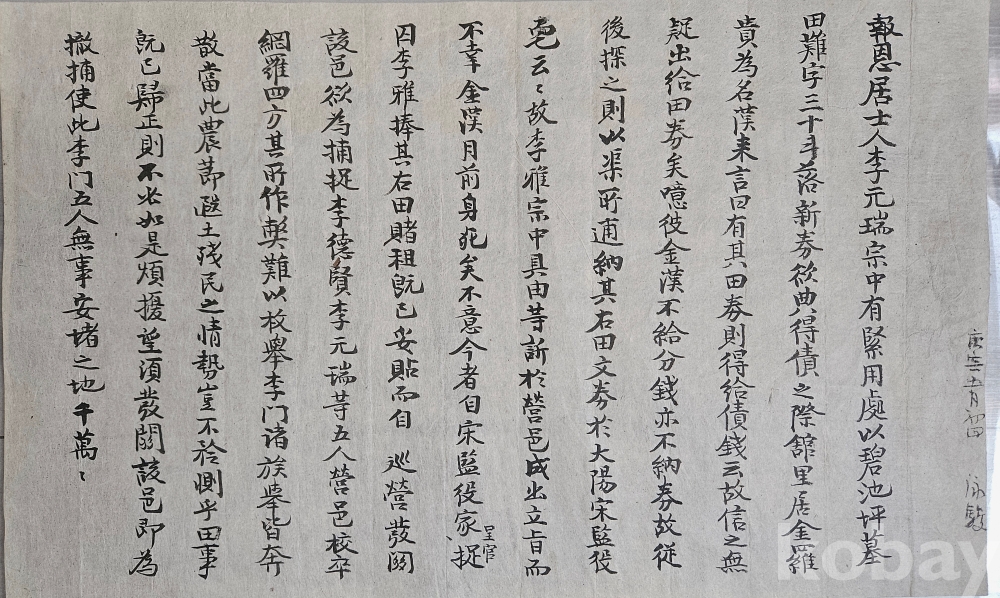 報恩居士人李元瑞宗中有緊用處以碧池坪墓
田難字三十斗落新券欲典得債之際舘里居金羅
貴為名漢来言曰有其田券則得給債錢云故信之無
疑出給田券矣噫彼金漢不給分錢亦不納券故從
後探之則以渠所逋納其右田文券於大陽宋監役
宅云〻故李雅宗中具由等訴於營邑成出立旨而
不幸金漢月前身死矣不意今者自宋監役家呈官捉
囚李雅捧其右田賭租旣已妥貼而自 巡營發關
該邑欲為捕捉李德賢李元瑞等五人營邑校卒
網羅四方其所作獘難以枚舉李门诸族舉皆奔
散當此農莭遐土残民之情勢豈不矜惻乎田事
旣已歸正則不必如是煩擾望須發關該邑即為
撤捕使此李门五人無事安堵之地千萬〻
kobay